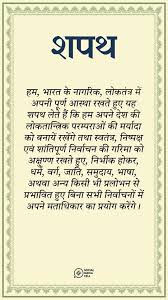 शपथ
हम, भारत के नागरिक, लोकतंत्र में
अपनी पूर्ण आस्था रखते हुए यह
शपथ लेते हैं कि हम अपने देश की
लोकतान्त्रिक परम्पराओं की मर्यादा
को बनाये रखेंगे तथा स्वतंत्र, निष्पक्ष
एवं शांतिपूर्ण निर्वाचन की गरिमा को
अक्षुण्ण रखते हुए, निर्भीक होकर,
धर्म, वर्ग, जाति, समुदाय, भाषा,
अथवा अन्य किसी भी प्रलोभन से
प्रभावित हुए बिना सभी निर्वाचनों में
अपने मताधिकार का प्रयोग करेंगे।